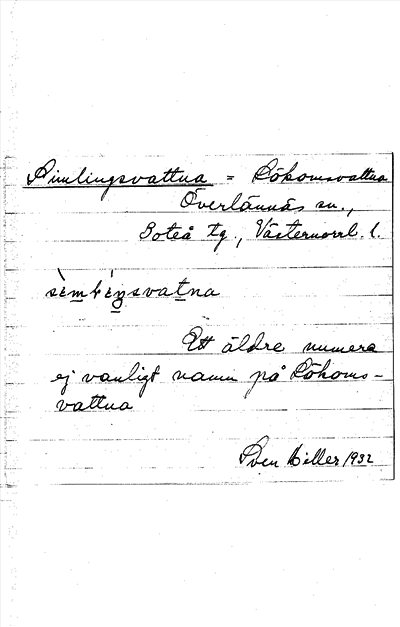 Simlingsvattna = Lökomsvattna
Överlännäs sn.,
Boteå tg., Västernorrl. l.
Ett äldre numera
ej vanligt namn på Lökoms-
vattna
Sven Hiller 1932